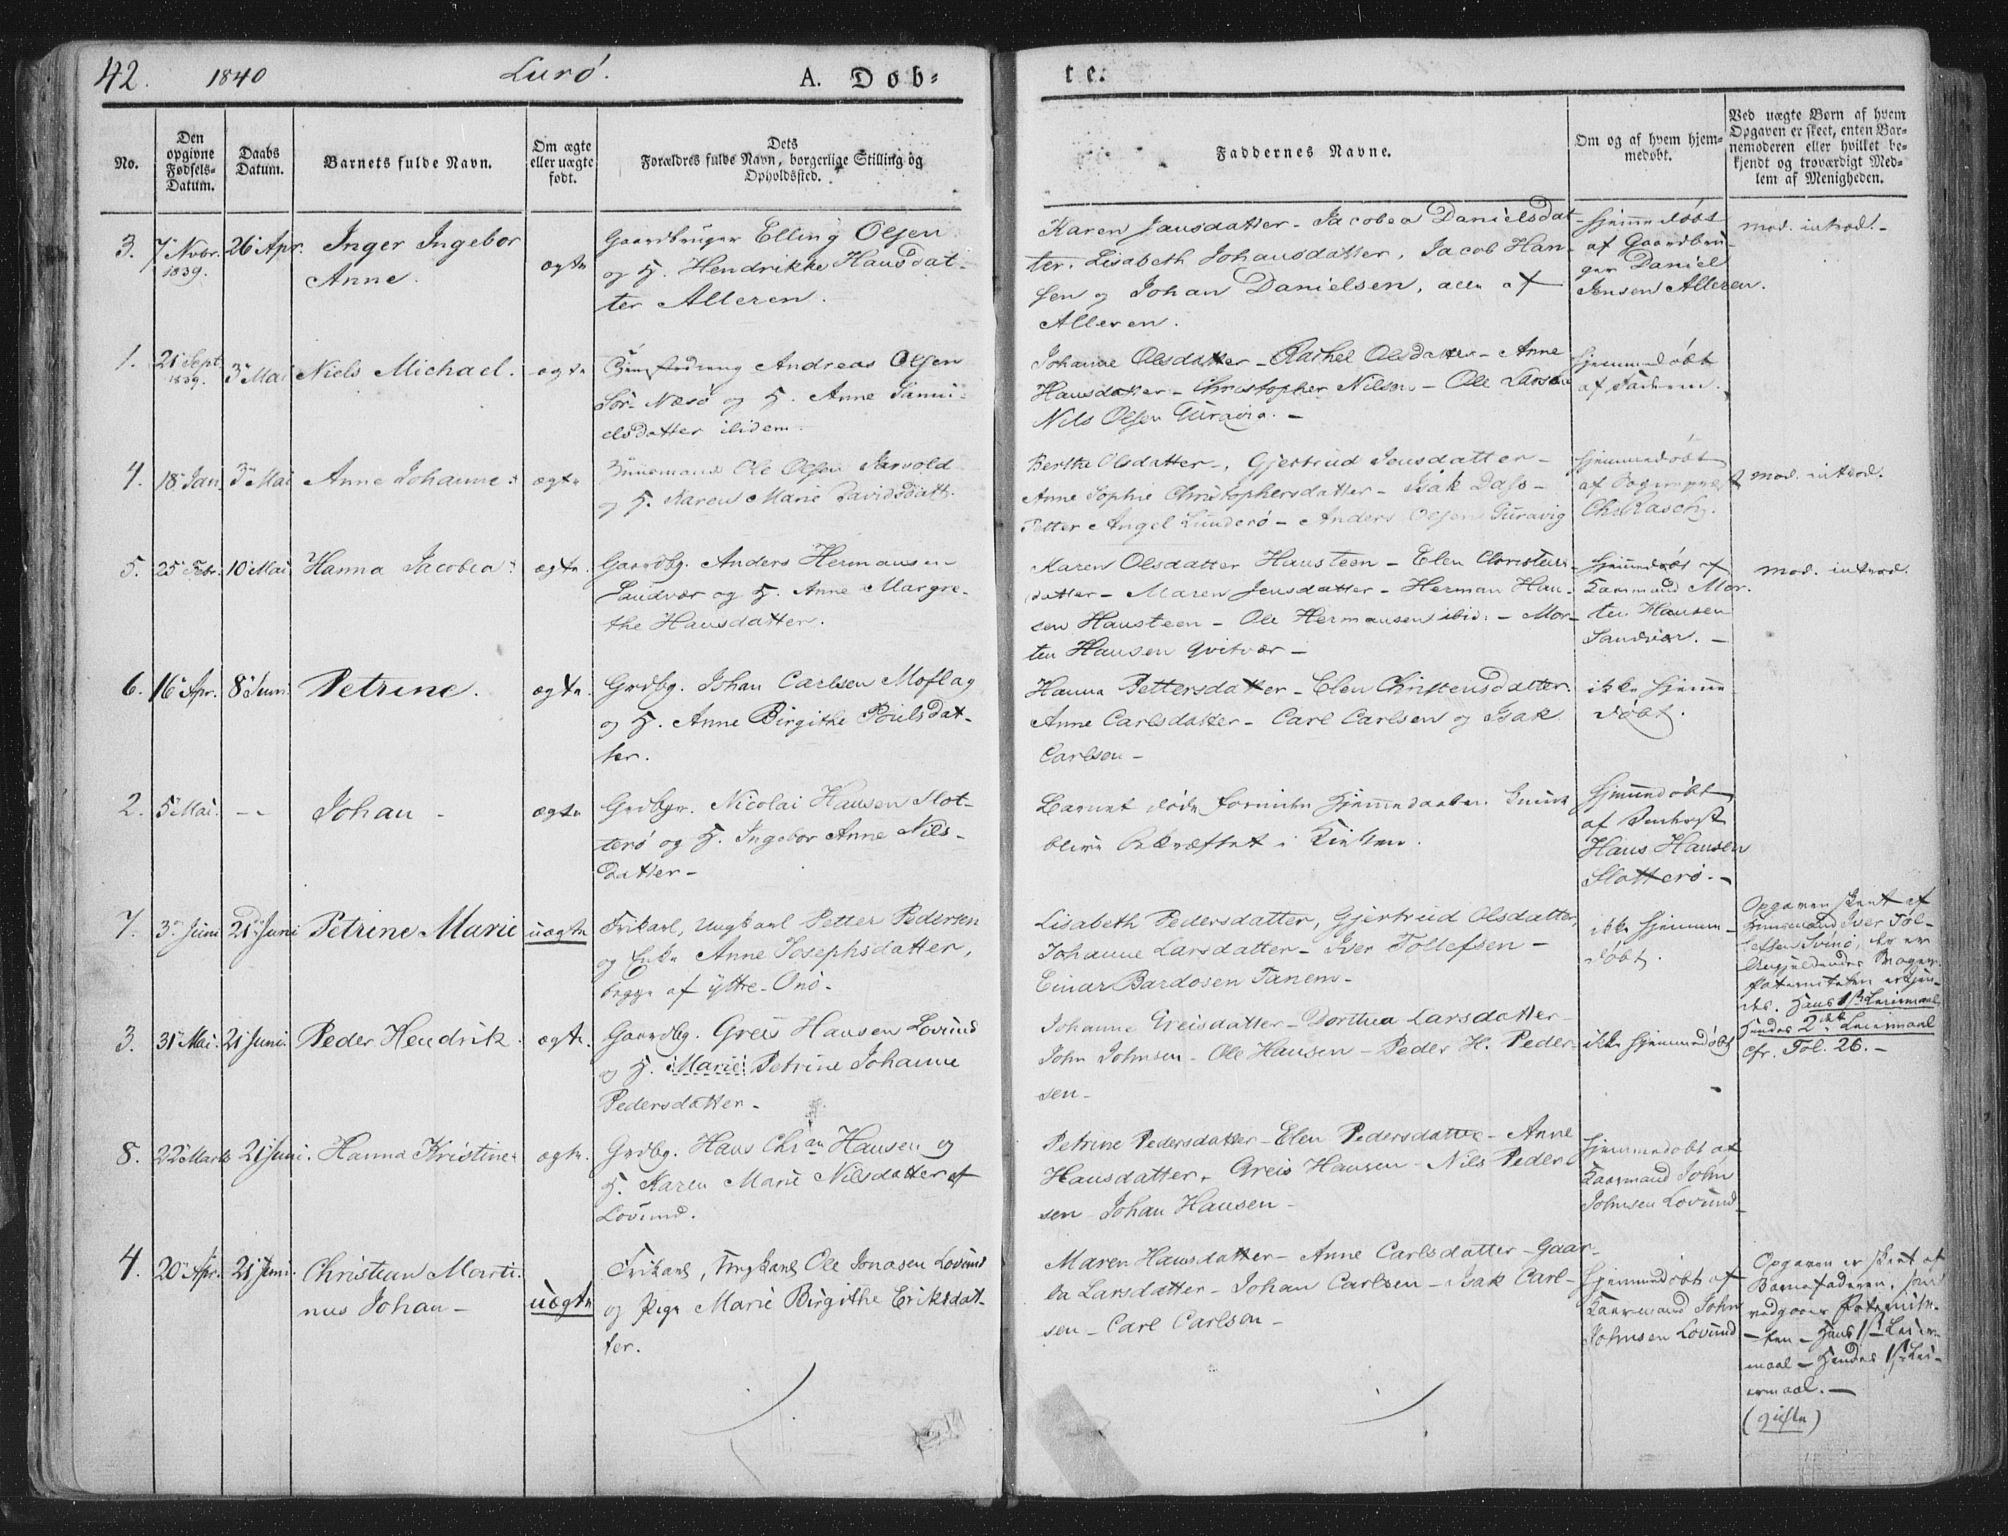 42. 1840 Lurö. A. Döb=
te.
No.
Den opgivne Fødsels-Datum.
Daabs Datum.
Barnets fulde Navn.
Om ægte eller uægte født.
Dets Forældres fulde Navn, borgerlige Stilling og Opholdssted.
Faddernes Navne.
Om og af hvem hjemmedøbt.
Ved uægte Børn af hvem Opgaven er skeet, enten Barnemoderen eller hvilket bekjendt og troværdigt Medlem af Menigheden.
3. 7 Novbr. 1839. 26 Apr. Inger Ingebor
Anne. ægte
Gaardbruger Elling Olsen
og H. Hendrikke Hansdat-
ter Alleren.
Karen Jansdatter - Jacobea Danielsdat-
ter. Lisabeth Johansdatter, Jacob Han-
sen og Johan Danielsen, alle af
Alleren.
hjemmedöbt
af Gaardbru-
ger Daniel
Jensen Alleren.
mod. introd. -
1. 21 Sept 1839. 3 Mai Niels Michael. ægte
Andreas Olsen
Sör-Næsö og H. Anne Samu-
elsdatter ibidem.
Johanne Olsdatter - Rachel Olsdatter - Anne
Hansdatter - Christopher Nilsen - Ole Larsen
Nils Olsen Guravig. -
hjemmedöbt
af Faderen.
4. 18 Jan. 3 Mai Anne Johanne. ægte
Ole Olsen
og H. Marie Davidsdatt.
Berthe Olsdatter -, Gjertrud Jensdatter -
Anne Sophie Christophersdatter - Isak Dass -
Petter Angel Lunderö - Anders Olsen Guravig
hjemmedöbt
af Sognepræst
Chr Rasch.
mod. introd.
5. 25 Febr. 10 Mai Hanna Jacobea. ægte.
Gaardbg. Anders Hermansen
Sandvær og H. Anne Margre-
the Hansdatter.
Karen Olsdatter Hansteen - Elen Christens-
datter - Maren Jensdatter - Herman Han-
sen Hansteen - Ole Hermansen ibid: - Mor-
ten Hansen Qvitvær -
hjemmedöbt af
Kaarmand Mor-
ten Hansen
Sandvær. -
mod. introd.
6. 16 Apr. 8 Juni Petrine. ægte.
Grdbg. Johan Carlsen Moflag
og H. Anne Birgithe Poulsdat-
ter.
Hanna Pettersdatter - Elen Christensdatter.
Anne Carlsdatter - Carl Carlsen og Isak
Carlsen -
ikke hjemme-
döbt.
2. 5 Mai. -- Johan - ægte.
Grdbgr. Nicolai Hansen Slot-
terö og H. Ingebor Anne Nils-
datter -
Barnet döde forinden Hjemmedaaben kunde
blive bekræftet i Kirken.
hjemmedöbt
af
Hans Hansen
Slotterö. -
7. 3 Juni 21 Juni Petrine Marie uægte
Frikarl, Ungkarl Petter Pedersen
og Enke Anne Josephsdatter,
begge af yttre-Onö.
Lisabeth Pedersdatter, Gjertrud Olsdatter,
Johanne Larsdatter - Iver Tollefsen -
Einar Bardosen Tanem -
ikke hjemme-
döbt.
Opgaven skeet af
Huusmand Iver Tol-
lefsen Svinö,
paterniteten erkjen-
des. Hans 1ste Leiermaal
Hendes 2det Leiermaal
cfr. Fol. 26. -
3. 31 Mai. 21 Juni. Peder Hendrik. ægte.
Gaardbg. Greis Hansen Lovund
og H. (Marie) Petrine Johanne
Pedersdatter -
Johanne Greisdatter - Dorthea Larsdatter -
John Johnsen - Ole Hansen - Peder H. Peder-
sen -
ikke hjemmedöbt
8. 22 Marts 21 Juni. Hanna Kristine. ægte.
Grdbg. Hans Chran Hansen og
H. Karen Marie Nilsdatter af
Lovund.
Petrine Pedersdatter - Elen Pedersdatter - Anne
Hansdatter. Greis Hansen - Nils Peder-
sen - Johan Hansen -
hjemmedöbt af
Kaarmand John
Johnsen Lovund -
4. 20 Apr. 21 Juni. Christian Marti-
nus Johan - uægte
Frikarl, Ungkarl Ole Jonasen Lovund
og Pige Marie Birgithe Eriksdat-
ter.
Maren Hansdatter - Anne Carlsdatter - Gaar-
da Larsdatter - Johan Carlsen - Isak Carl-
sen - Carl Carlsen -
hjemmedöbt af
Kaarmand John
Johnsen Lovund
Opgaven er skeet af
Barnefaderen, som
vedgaaer Paternite-
ten - Hans 1ste Leier-
maal - Hendes 1ste Lei-
ermaal. -
(gifte)